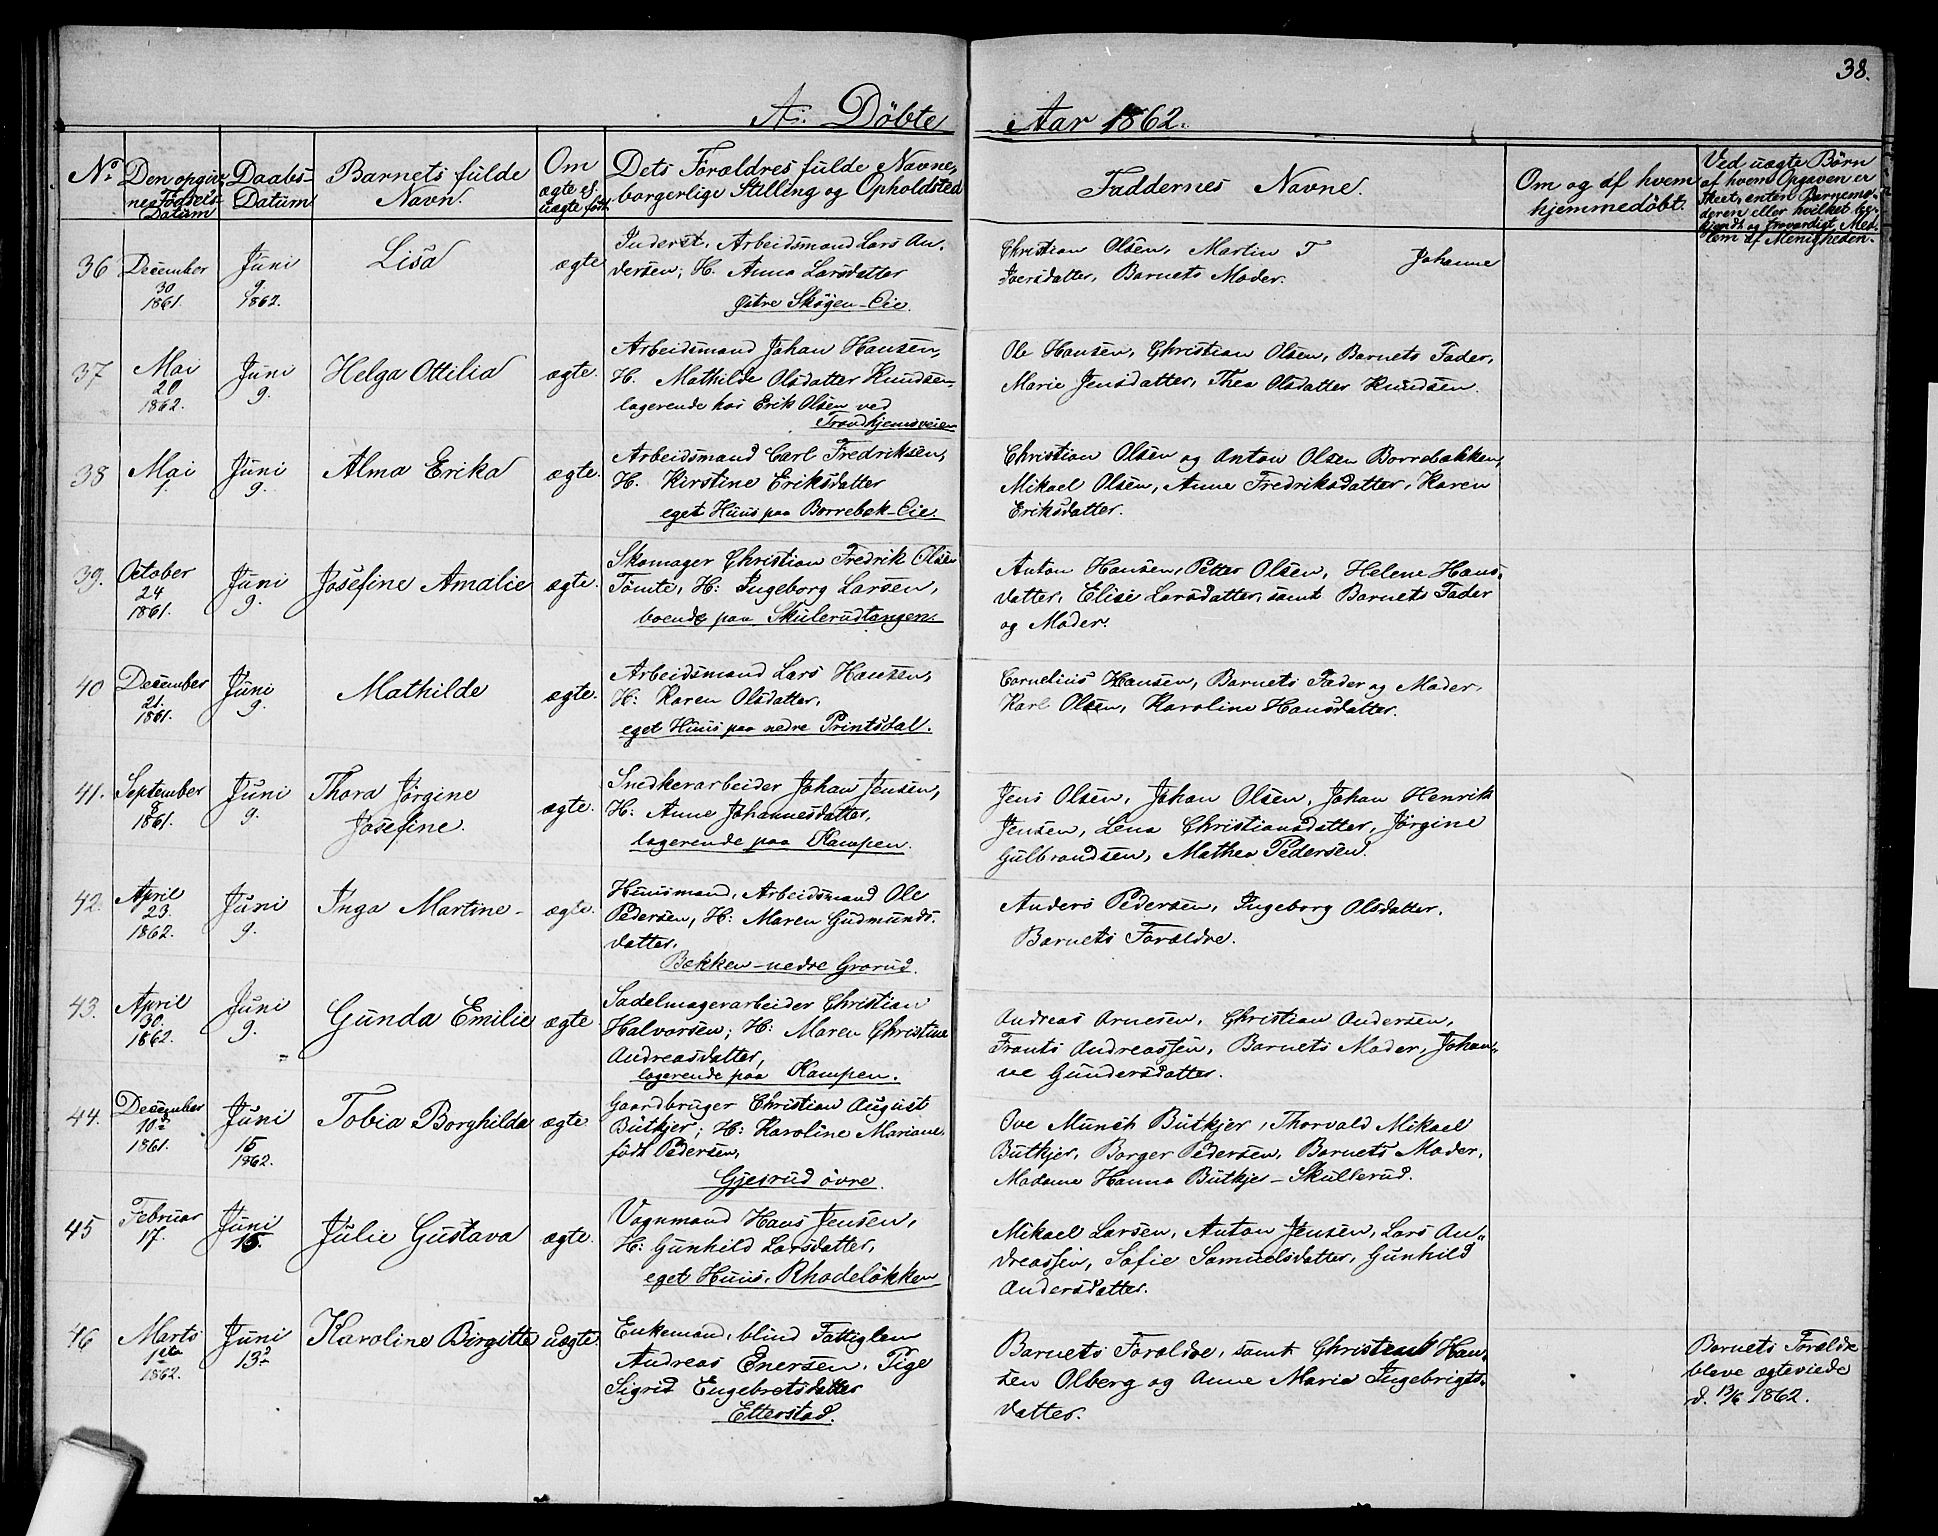 38.
A: Döbte Aar 1862.
No. Den opgivne Fødsels-Datum Daabs-Datum Barnets fulde Navn. Om ægte el. uægte født. Dets Forældres fulde Navne, borgerlige Stilling og Opholdsted Faddernes Navne. Om og af hvem hjemmedöbt. Ved uægte Börn af hvem Opgaven er skeet, enten Barnemoderen eller hvilket bekjendt og troværdigt Medlem af Menigheden.
36 December Juni Lisa ægte Inderst, Arbeidsmand Lars An- Christian Olsen, Martin T Johanne
30 9. dersen, H. Anna Larsdatter Iversdatter, Barnets Moder.
1861. 1862. östre Skögen-Eie.
37 Mai Juni Helga Ottilia ægte. Arbeidsmand Johan Hansen, Ole Hansen, Christian Olsen, Barnets Fader,
20 9. H. Mathilde Olsdatter Knudsen- Marie Jensdatter, Thea Olsdatter Knudsen.
1862. logerende hos Erik Olsen ved
Trondhjemsveien
38 Mai Juni Alma Erika ægte. Arbeidsmand Carl Fredriksen, Christian Olsen og Anton Olsen Borrebakken,
1. 9. H. Kirstine Eriksdatter Mikael Olsen, Anne Fredriksdatter, Karen
eget Huus paa Borrebæk-Eie. Eriksdatter.
39. October Juni Josefine Amalie ægte. Skomager Christian Fredrik Olsen Anton Hansen, Petter Olsen, Helene Hans-
24 9. Tomte, H: Ingeborg Larsen, datter, Elise Larsdatter, samt Barnets Fader
1861. boende paa Skulerudtangen. og Moder.
40 December Juni Mathilde ægte. Arbeidsmand Lars Hansen, Cornelius Hansen, Barnets Fader og Moder,
21. 9. H: Karen Olsdatter, Karl Olsen, Karoline Hansdatter.
1861. eget Huus paa nedre Printsdal.
41. September Juni Thora Jörgine ægte. Snedkerarbeider Johan Jensen, Jens Olsen, Johan Olsen, Johan Henrik
8 9. Josefine. H: Anne Johannesdatter, Jensen, Lena Christiansdatter, Jörgine
1861. logerende paa Kampen. Gulbrandsen, Mathea Pedersen.
42. April Juni Inga Martine- ægte. Huusmand, Arbeidsmand Ole Anders Pedersen, Ingeborg Olsdatter.
23. 9. Pedersen, H: Maren Gudmunds- Barnets Forældre.
1862. datter,
Bækken-nedre Grorud.
43. April Juni Gunda Emilie ægte Sadelmagerarbeider Christian Andreas Arnesen, Christian Andersen,
30. 9. Halvorsen; H: Maren Christine Frants Andreassen, Barnets Moder, Johan-
1862. Andreasdatter, ne Gundersdatter.
logerende paa Kampen.
44. December Juni Tobia Borghilda ægte Gaardbruger Christian August Ove Munch Bütkjer, Thorvald Mikael
10de 15 Bütkjer; H: Karoline Mariane Butkjer, Borger Pedersen, Barnets Moder,
1861. 1862. född Pedersen, Madame Hanna Bütkjer-Skullerud.
Gjesrud övre.
45 Februar Juni Julie Gustava ægte. Vognmand Hans Jensen, Mikael Larsen, Anton Jensen, Lars An-
17. 15. H: Gunhild Larsdatter, dreassen, Sofie Samuelsdatter, Gunhild
eget Huus, Rhodelökken Andersdatter.
46 Marts Juni Karoline Birgitte uægte. Enkemand, blind Fattiglem Barnets Forældre, samt Christen Han- Barnets Forældre
1ste 13de Andreas Enersen, Pige sen Olberg og Anne Marie Ingebrigts- bleve ægteviede
1862. Sigrid Engebretsdatter datter. d. 13/6 1862.
Etterstad.